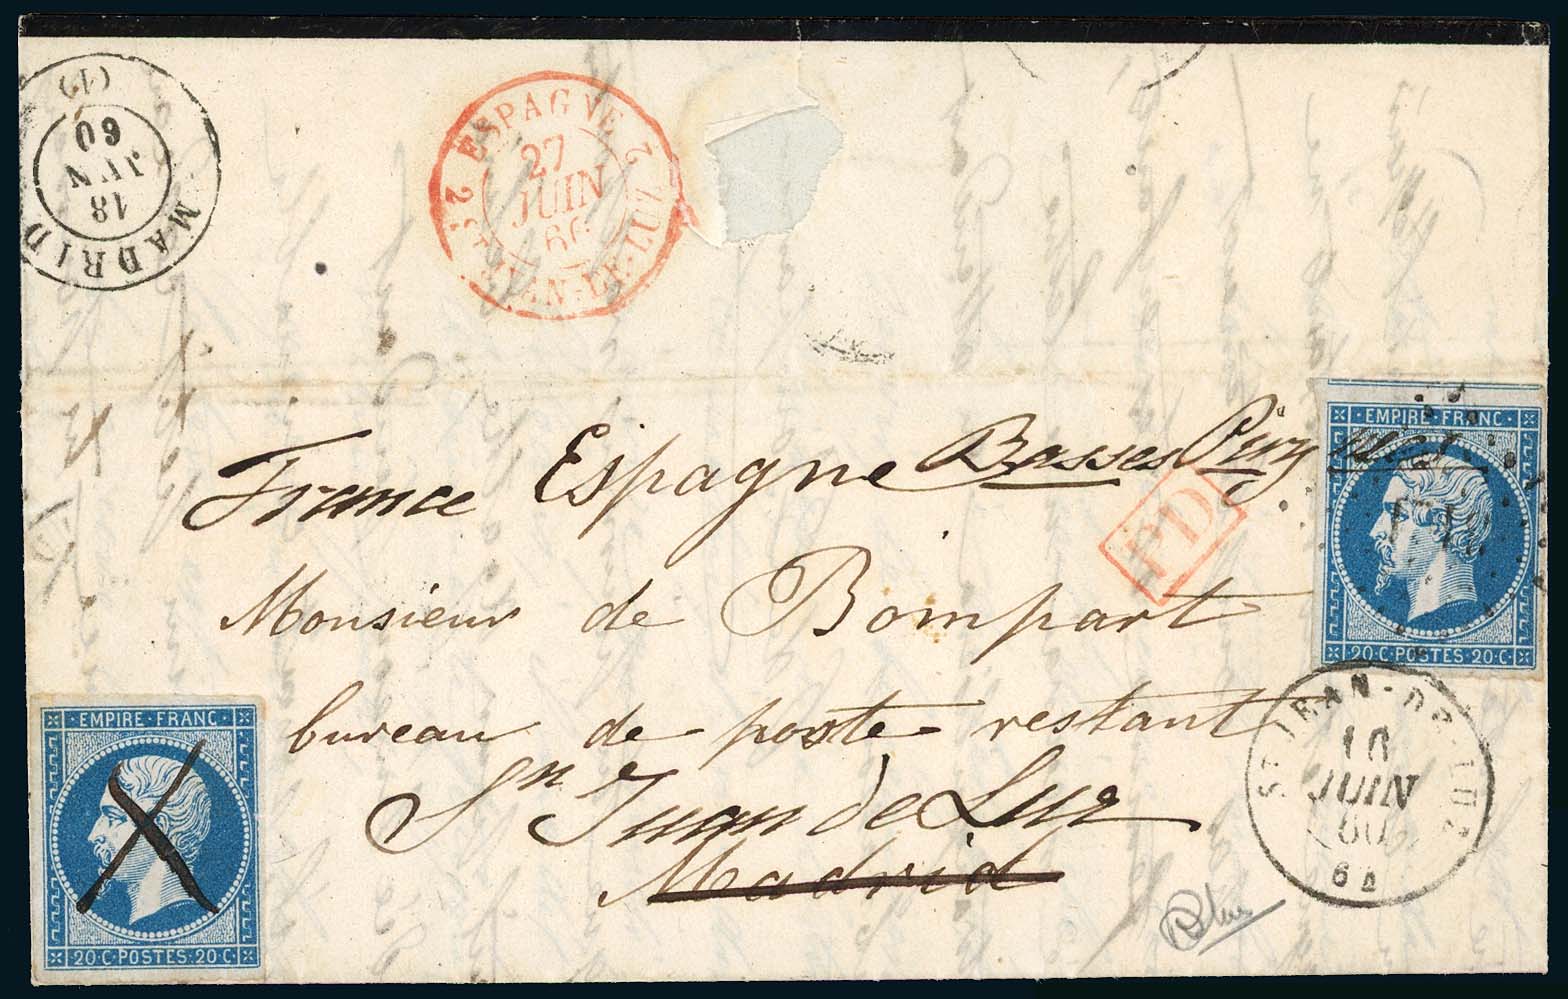 MADRID
18
JUN
60
(1)
2 ESPAGNE 2
27
JUIN
60
ST-J-DE-LUZ
France Espagne Basses Pyr
PD
EMPIRE·FRANC·
20·C·POSTES·20·C·
Monsieur de Bompart
bureau de poste restant
Sn Juan de Luz
Madrid
ST JEAN-DE-LUZ
16
JUIN
60
EMPIRE·FRANC·
20·C·POSTES·20·C·